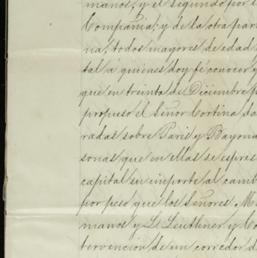 manos, y el segundo por l
Compañia; y de la otra par
na, todos mayores de edad
tal á quienes doy fé conocer y
que en treinta de Diciembre p
propuso el Señor Cortina da
radas sobre Paris y Bayona
sonas que en ellas se espres
capital en importe al camb
por peso que los Señores M
manos y Ls Leuthner y Co
tervencion de un corredor d